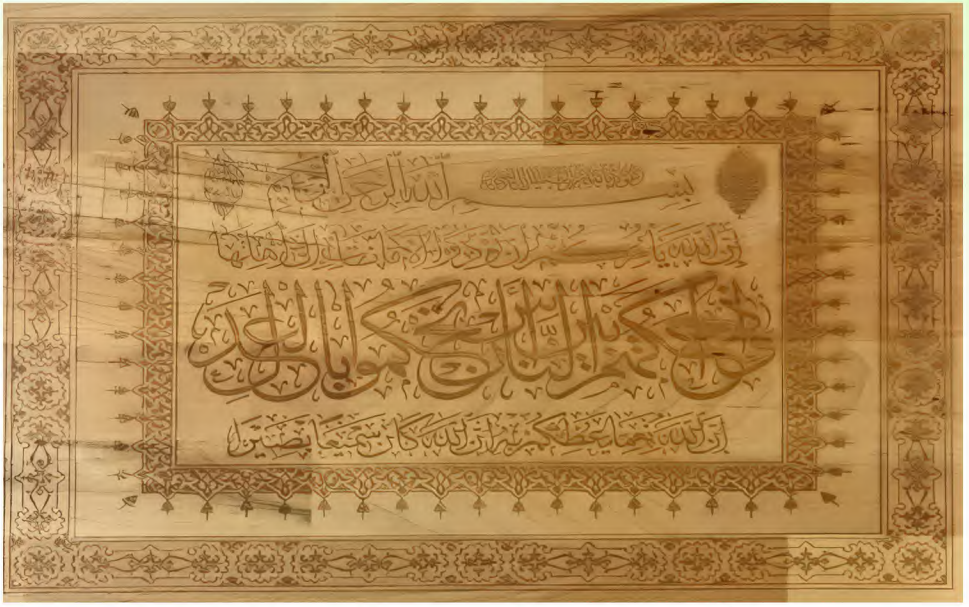 بسم الله الرحمن الرحيم
إن الله يأمركم أن تؤدوا الأمانات إلى أهلها
وإذا حكمتم بين الناس أن تحكموا بالعدل
إن الله نعما يعظكم به إن الله كان سميعا بصيرا